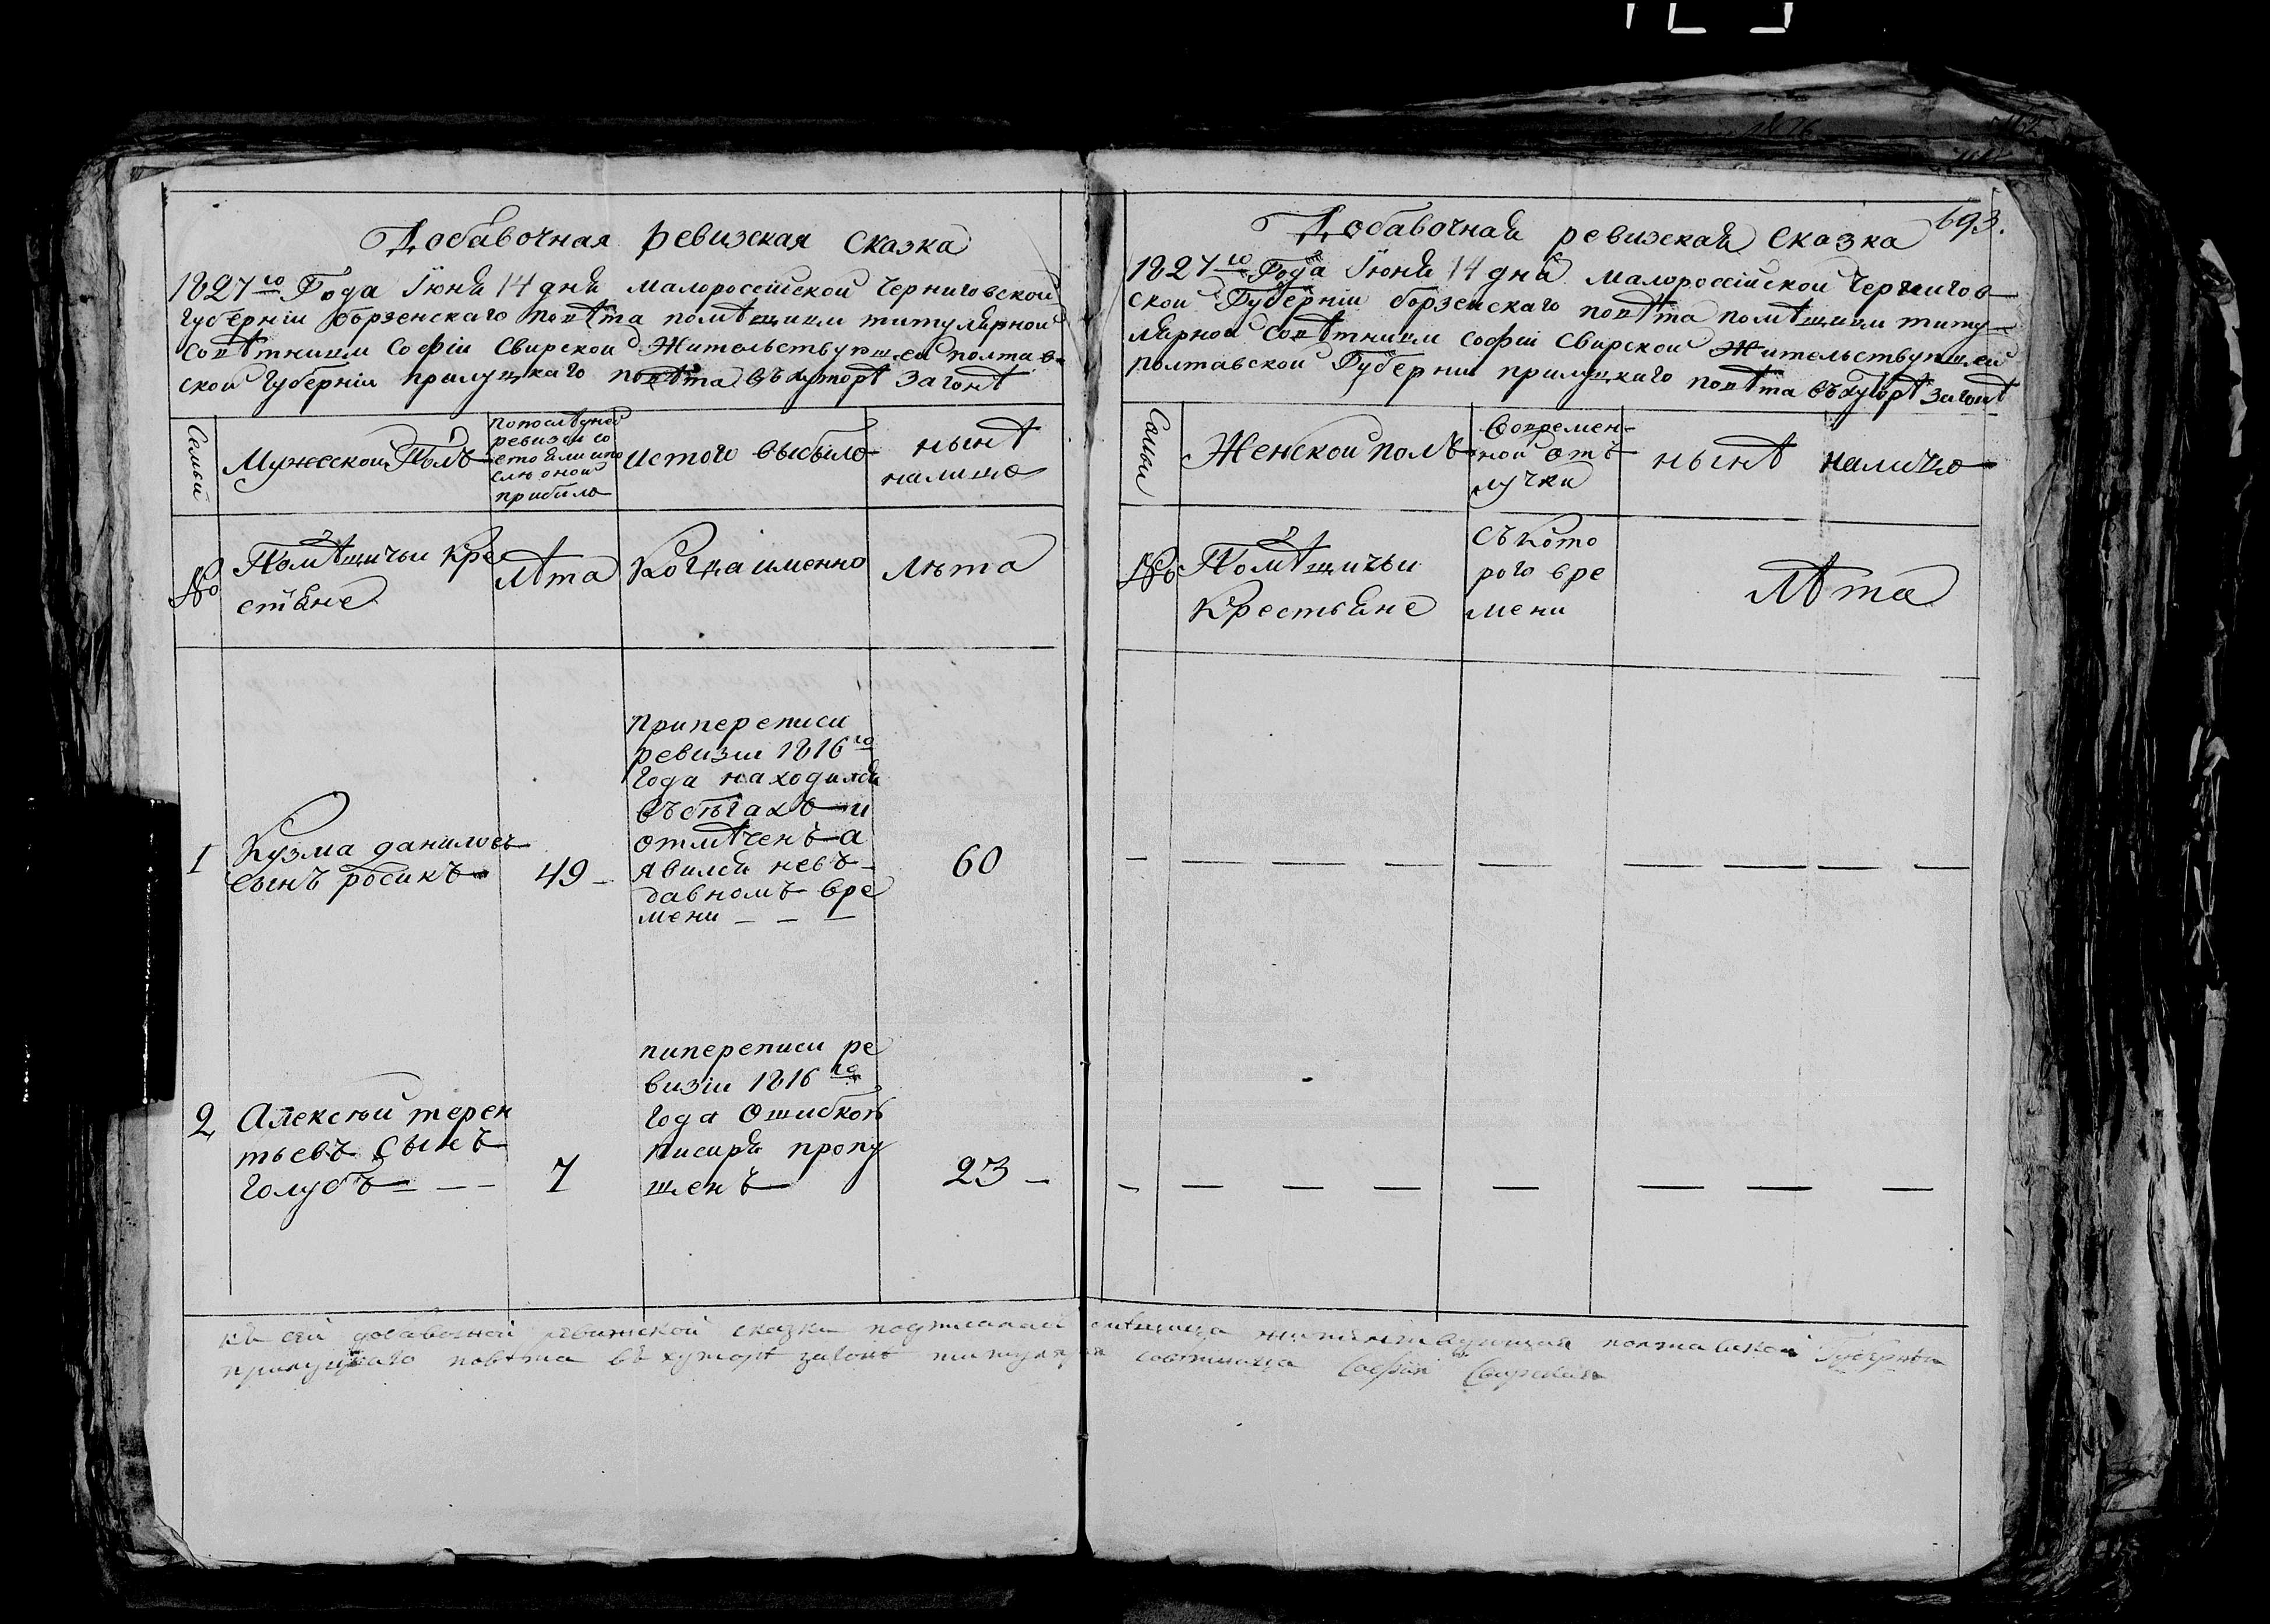 Добавочная ревизская сказка
1827го Года Июня 14 дня малороссійской Черниговской
Губерніи борзенскаго повѣта помѣщици титулярной
совѣтници Софіи Свирской Жительствующей полтав-
ской Губерніи прилуцкаго повѣта въ хуторѣ Загонѣ
Семьи
Мужескои Полъ
попослѣдней
ревизіи со
стояли ипо
слѣ оной
прибыло
истого выбыло
нынѣ
налицо
№
Помѣщичьи кре
стьяне
лѣта
Когда именно
лѣта
1
Кузма даниловъ
сынъ росикъ
49
при переписи
ревизіи 1816го
Года находился
въ бѣгахъ и
отмѣченъ а
явился невъ
давномъ вре
мени
60
2
Алексѣй терен
тьевъ сынъ
голубъ
7
пипереписи ре
визіи 1816го
года ошибкою
писаря пропу
щенъ
23
693.
Добавочная ревизская сказка
1827го Года Июня 14 дня малороссійской Чернигов
ской Губерніи борзенскаго повѣта помѣщици титу
лярной совѣтници софіи Свирской Жительствующей
Полтавской Губерніи прилуцкаго повѣта въ хуторѣ загонѣ
Семьи
Женскои полъ
Вовремен-
ной отъ
лучки
нынѣ налицо
№
Помѣщичьи
Крестьяне
съ кото
рого вре
мени
Лѣта
къ сей добавочной ревизской сказки жительствующая полтавской Губерніи
прилуцкаго повѣта въ хуторѣ загонѣ титулярная совѣтница Софія Свирская